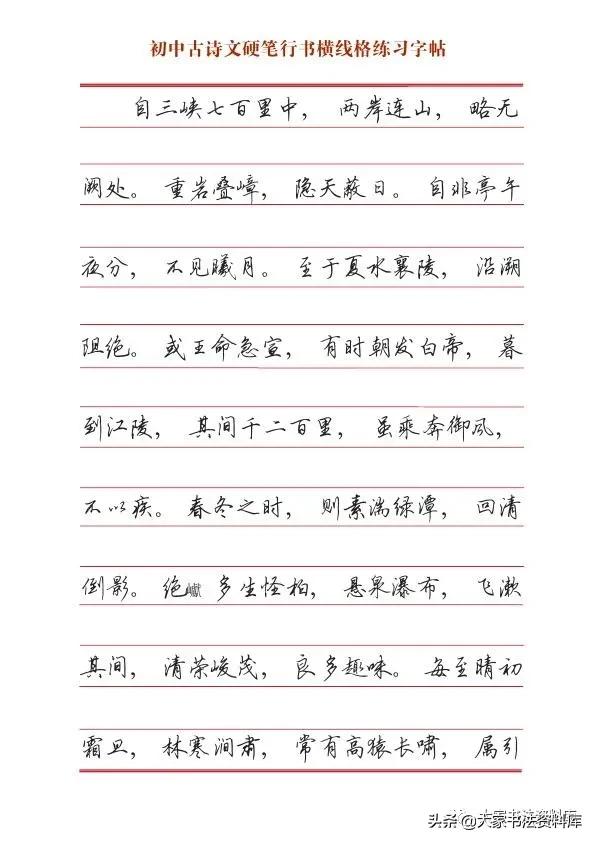 初中古诗文硬笔行书横线格练习字帖
自三峡七百里中，两岸连山，略无
阙处。重岩叠嶂，隐天蔽日。自非亭午
夜分，不见曦月。至于夏水襄陵，沿溯
阻绝。或王命急宣，有时朝发白帝，暮
到江陵，其间千二百里，虽乘奔御风，
不以疾。春冬之时，则素湍绿潭，回清
倒影。绝巘多生怪柏，悬泉瀑布，飞漱
其间，清荣峻茂，良多趣味。每至晴初
霜旦，林寒涧肃，常有高猿长啸，属引
大家书法资料库
头条@大家书法资料库